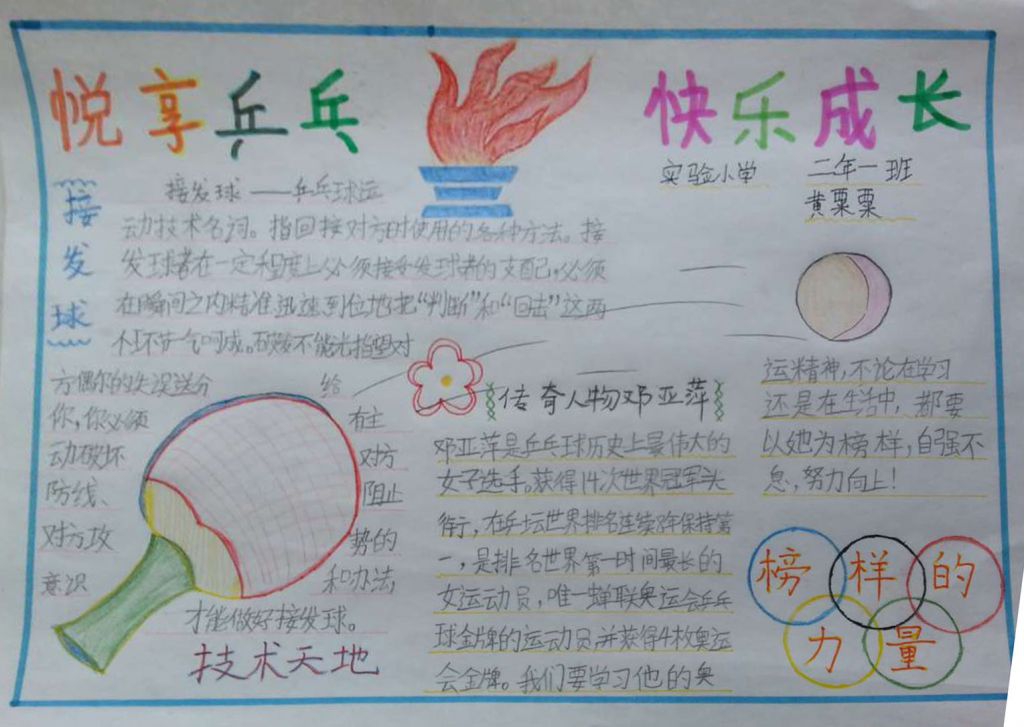 悦享乒乓
快乐成长
实验小学 二年一班
黄粟粟
接发球
接发球——乒乓球运
动技术名词。指回接对方时使用的各种方法。接
发球者在一定程度上必须接受发球者的支配,必须
在瞬间之内精准迅速到位地把“判断”和“回击”这两
个环节一气呵成。 不能光指望对
方偶尔的失误送分 给
你,你必须 有主
动破坏 对方
防线、 阻止
对方攻 势的
意识 和办法
才能做好接发球。
技术天地
传奇人物邓亚萍
邓亚萍是乒乓球历史上最伟大的
女子选手。获得14次世界冠军头
衔,在乒坛世界排名连续8年保持第
一,是排名世界第一时间最长的
女运动员,唯一蝉联奥运会乒乓
球金牌的运动员,并获得4枚奥运
会金牌。我们要学习他的奥
运精神,不论在学习
还是在生活中,都要
以她为榜样,自强不
息,努力向上!
榜样的
力量